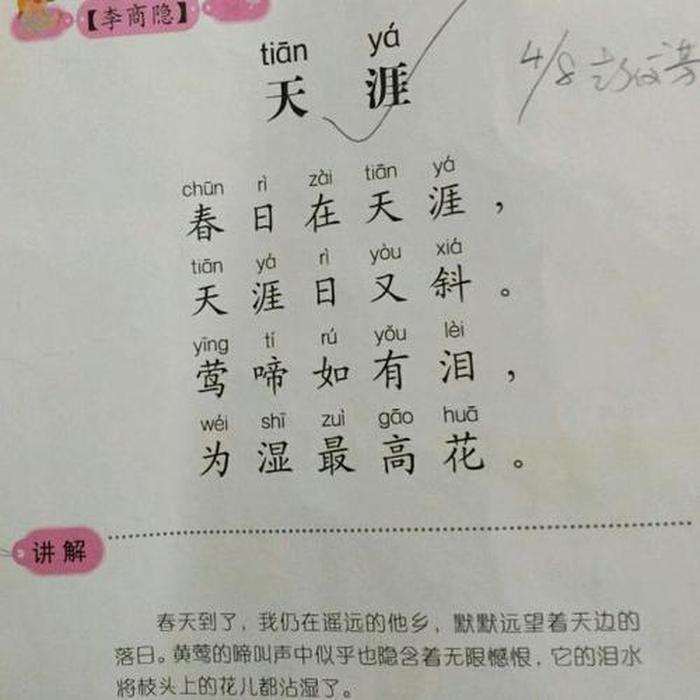 【李商隐】
tiān yá
天涯
4/8
chūn rì zài tiān yá
春日在天涯，
tiān yá rì yòu xiá
天涯日又斜。
yīng tí rú yǒu lèi
莺啼如有泪，
wéi shī zuì gāo huā
为湿最高花。
讲解
春天到了，我仍在遥远的他乡，默默远望着天边的
落日。黄莺的啼叫声中似乎也隐含着无限憾恨，它的泪水
将枝头上的花儿都沾湿了。